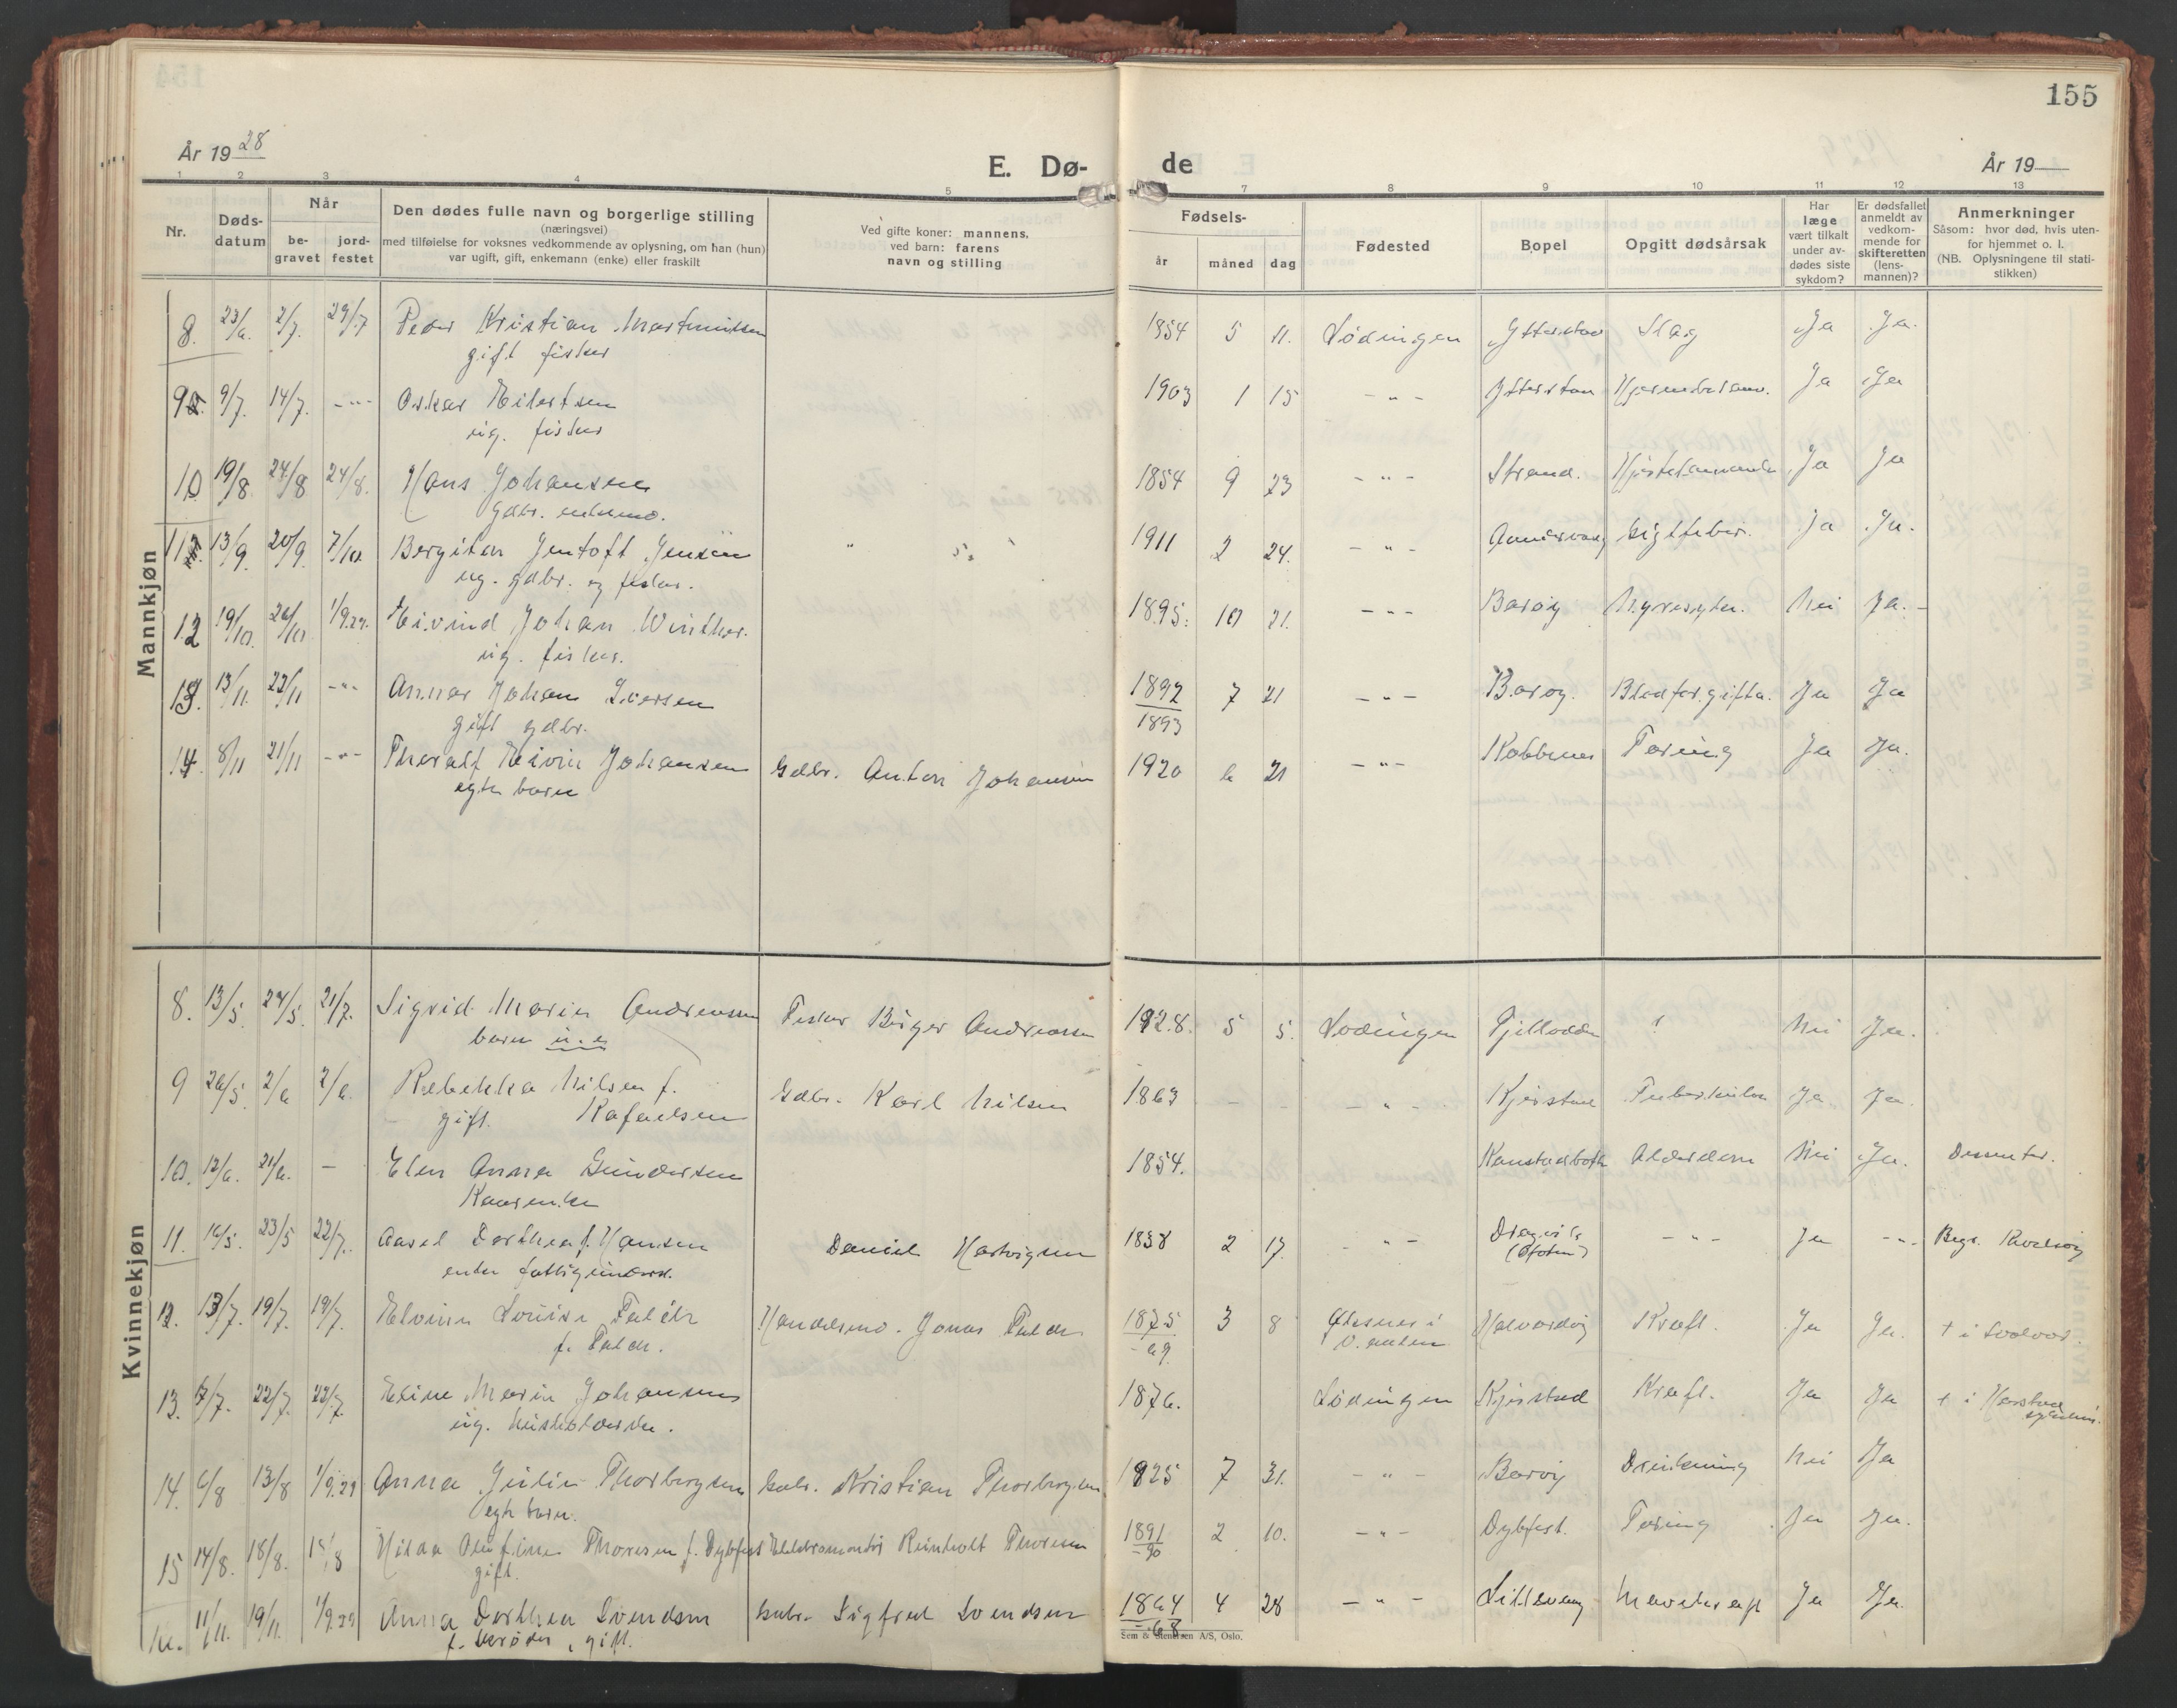 155
År 19 28
E. Dø-
de
År 19
1 2 3 4 5 7 8 9 10 11 12 13
Nr.
Døds-
datum
Når
be-
gravet
jord-
festet
Den dødes fulle navn og borgerlige stilling
(næringsvei)
med tilføielse for voksnes vedkommende av oplysning, om han (hun)
var ugift, gift, enkemann (enke) eller fraskilt
Ved gifte koner: mannens,
ved barn: farens
navn og stilling
Fødsels-
år
måned
dag
Fødested
Bopel
Opgitt dødsårsak
Har
læge
vært tilkalt
under av-
dødes siste
sykdom?
Er dødsfallet
anmeldt av
vedkom-
mende for
skifteretten
(lens-
mannen)?
Anmerkninger
Såsom: hvor død, hvis uten-
for hjemmet o. l.
(NB. Oplysningene til stati-
stikken)
Mannkjøn
8. 23/6. 2/7. 29/7 Peder Kristian Martinussen 1854 5 11. Lødingen Slag Ja Ja.
gift fisker
9. 9/7. 14/7. -"- Oskar Eilertsen 1903 1 15 -"- Ja Ja
ug. fisker
10 19/8 24/8 24/8. Hans Johansen 1854 9 23 -"- Strand. Ja Ja
Gdbr. enkemd.
11 13/9. 20/9. 7/10. Bergiton Jentoft Jensen 1911 2 24. -"- Ja Ja.
ug. gdbr. og fisker.
12 19/10. 26/10 1/9.29. Eivind Johan Winther. 1895. 10 21. -"- Barøy Nyresyke. Nei Ja.
ug. fisker.
13. 13/11. 22/11 -"- Annar Johan Iversen 1892 7 21 -"- Barøy. Blodforgiftn. Ja Ja
gift gdbr. 1893
14. 8/11 21/11 -"- Thoralf Eivin Johansen Gdbr. Anton Johansen 1920 6 21 -"- Kobbenes Tæring Ja Ja.
egte barn
Kvinnekjøn
8. 13/5. 24/5. 21/7. Sigrid Marie Andreassen Fisker Birger Andreassen 1928. 5 5. Lødingen Fjelldalen ? Nei Ja.
barn u.e
9 26/5. 2/6 2/6. Rebekka Nilsen f. Gdbr. Karl Nilsen 1863 - - -"- Kjerstad Tuberkulose Ja Ja.
gift. Rafaelsen
10. 12/6. 21/6. - Elen Anna Gundersen 1854. Kanstadbotn Alderdom Nei Ja. Dissenter.
Kaarenke
11. 16/5. 23/5 22/7. Aasel Dorthea f. Hansen Daniel Hartvigsen 1838 2 17. -"- -"- Ja -"-
enke fattigunderst. (Ofoten)
12. 13/7. 19/7. 19/7. Elvine Lovise Falch Handelsmd. Jonas Falch 1875 3 8 Kræft. Ja Ja. + i Svolvær.
f. Falch. -69
13. 7/7. 22/7. 22/7. Eline Marie Johansen 1876. Lødingen Kjerstad Kræft. Ja Ja + i Harstad
ug. husholderske. sykehus.
14. 6/8 13/8 1/9.29 Anna Julie Thorbergsen Gdbr. Kristian Thorbergsen 1925 7 31. -"- Barøy Drukning Nei Ja
egte barn.
15 14/8. 18/8. 18/8 Hilda Olufine Thoresen f. Dybfest Reinholt Thoresen 1891 2 10. -"- Dybfest. Tæring Ja Ja.
gift. -90
16. 11/11. 19/11. 1/9.29 Anna Dorthea Svendsen Gdbr. Sigfred Svendsen 1864 4 28 -"- Lillevang Mavekræft Ja Ja.
f. Skrøder, gift. -68.
Sem & Stenersen A/S, Oslo.